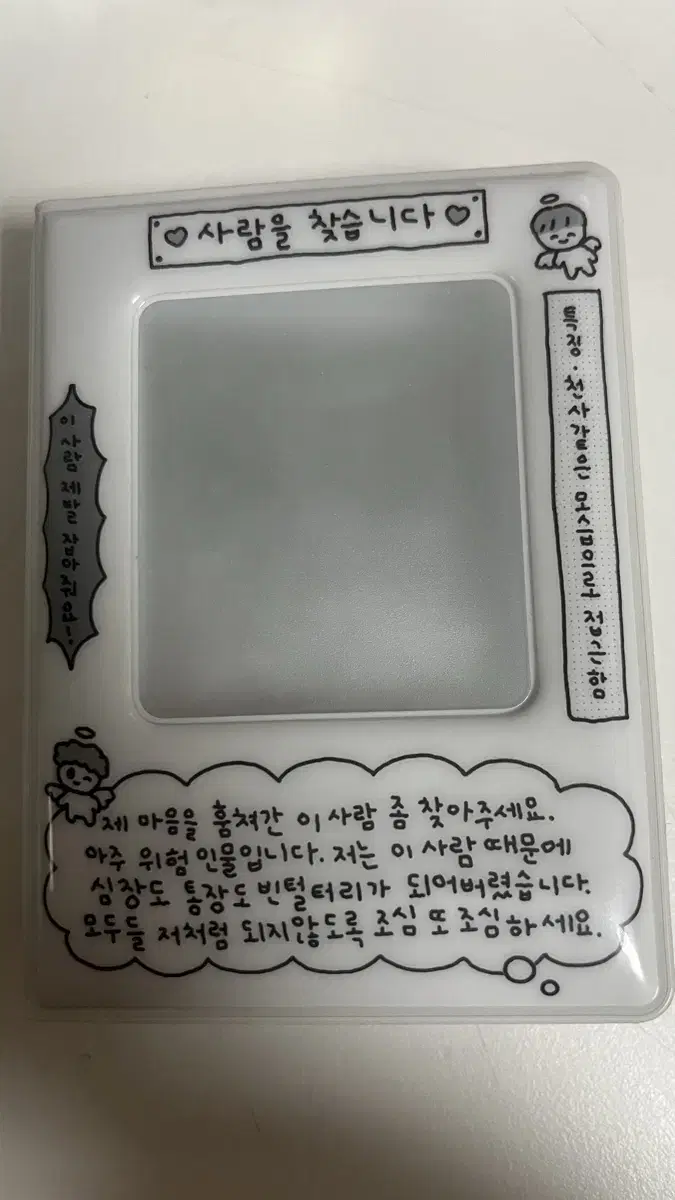 ♡ 사람을 찾습니다 ♡
특징·천사같은 모습으로 접근함
이 사람 제발 잡아줘요!
제 마음을 훔쳐간 이 사람 좀 찾아주세요.
아주 위험인물입니다. 저는 이 사람 때문에
심장도 통장도 빈털터리가 되어버렸습니다.
모두들 저처럼 되지않도록 조심 또 조심하세요.